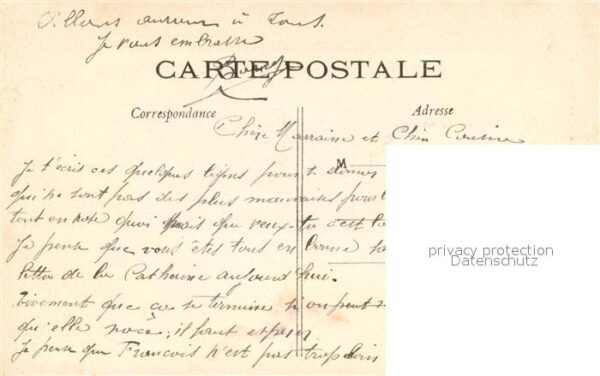 à Tous.
Je vous embrasse
CARTE POSTALE
Correspondance
Adresse
Chère Marraine et Chère Cousine
M
Je t'écris ces quelques lignes pour te donner
qui ne sont pas des plus mauvaises pour
tout en rose quoi mais que veux-tu c'est
Je pense que vous êtes tous en bonne
privacy protection
Datenschutz
lettre de la Catherine aujourd'hui.
vivement que ça se termine si on peut
qu'elle noce; il faut espérer
Je pense que François n'est pas trop loin